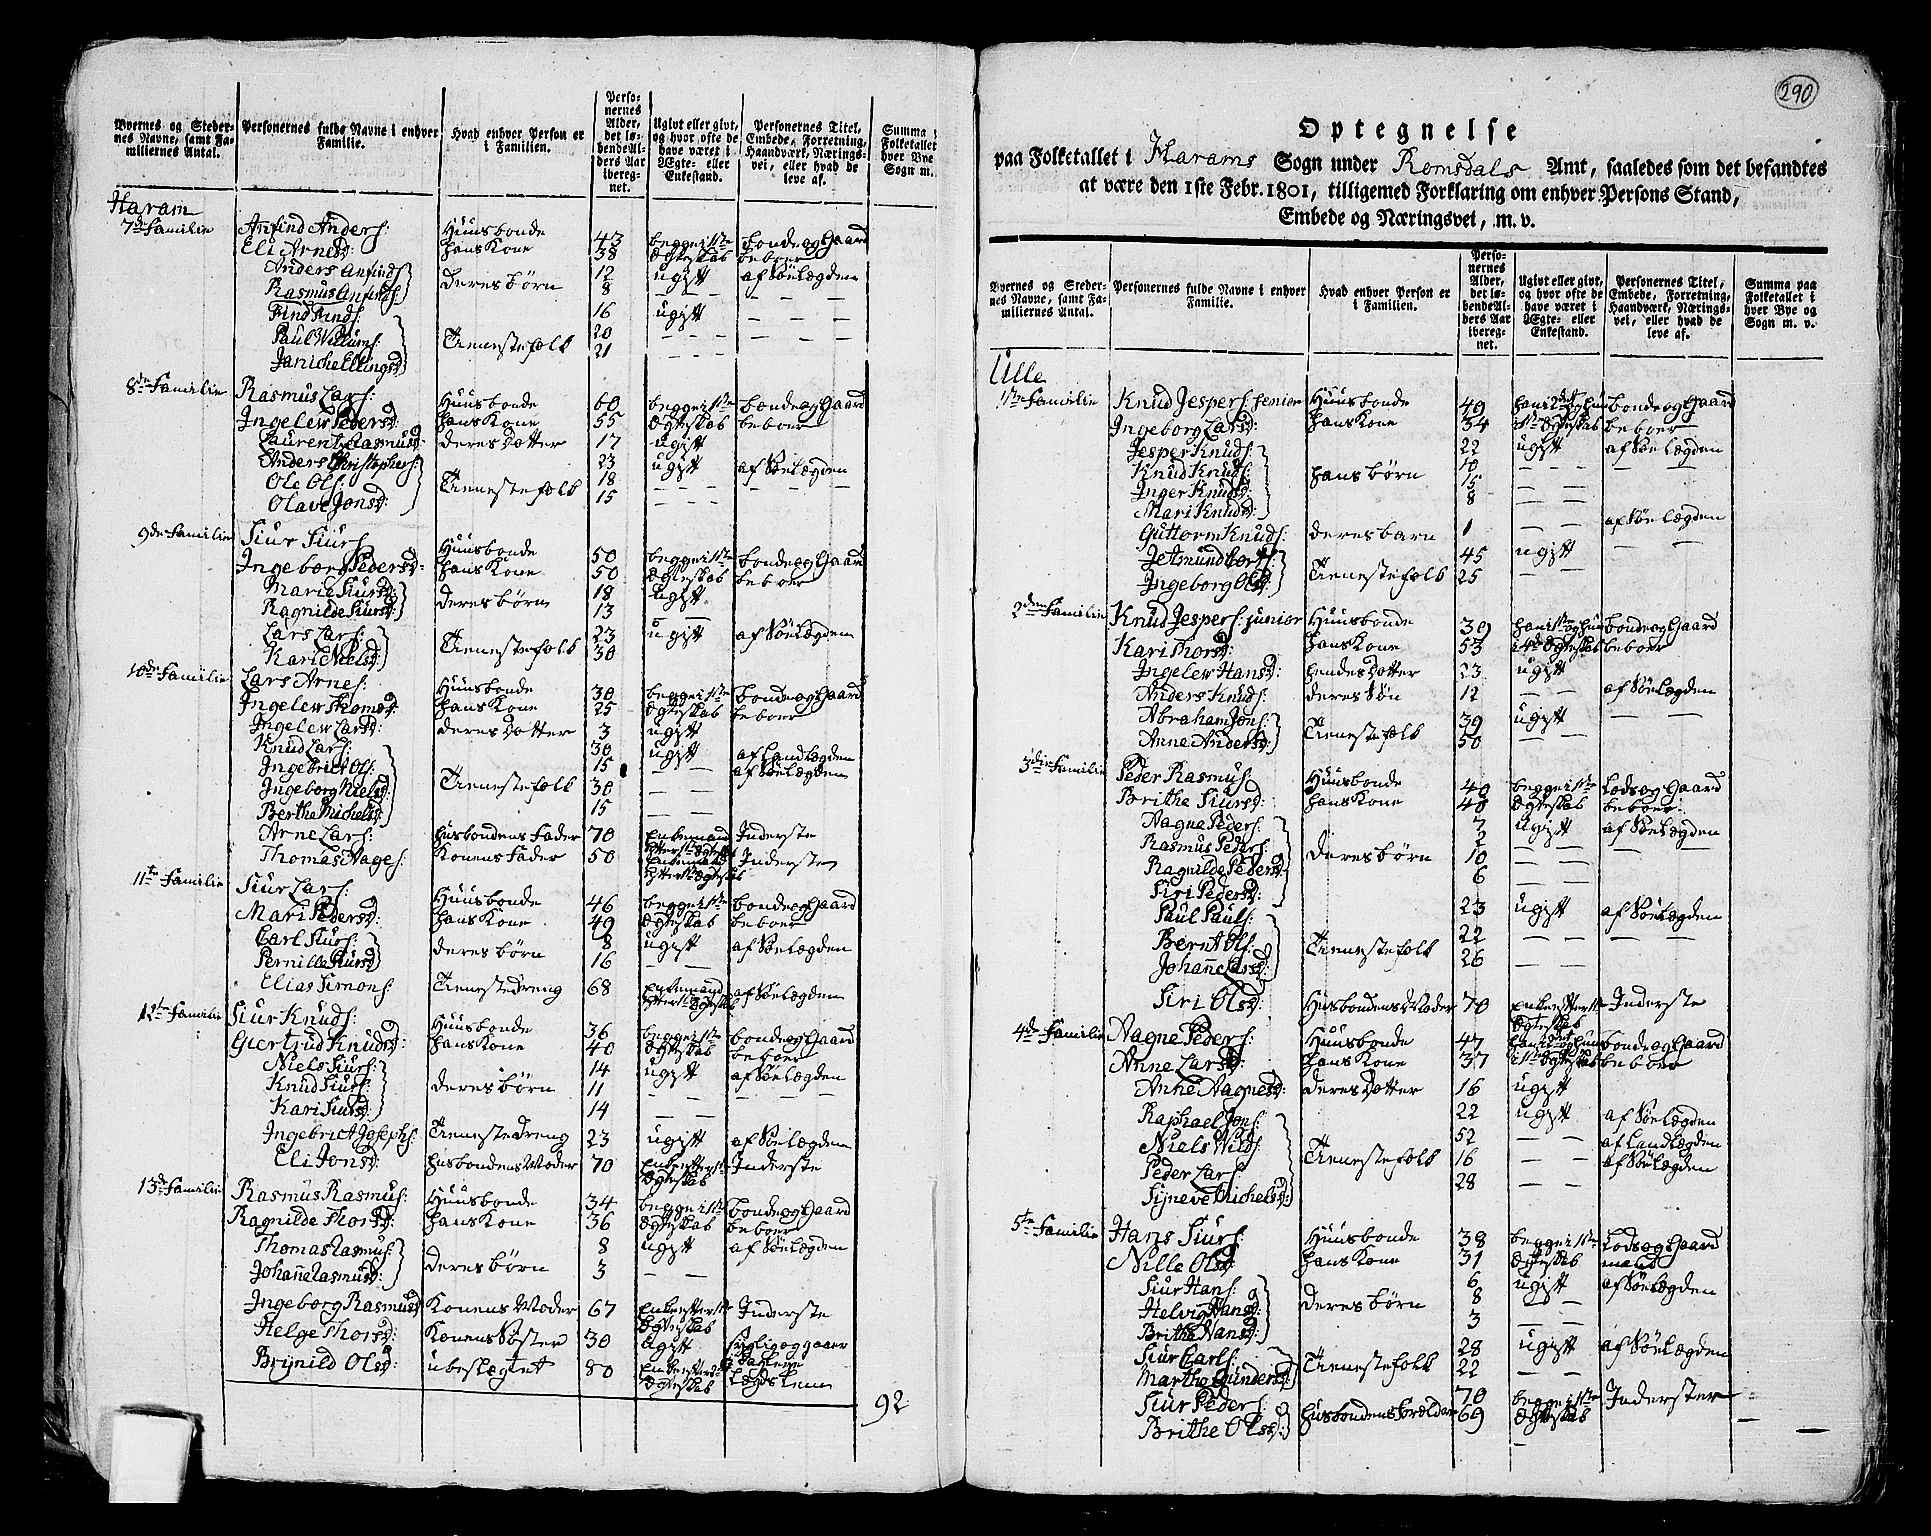 Byernes og Stedernes Navne, samt Familiernes Antal. | Personernes fulde Navne i enhver Familie. | Hvad enhver Person er i Familien. | Personernes Alder, det løbende Alders Aar iberegnet. | Ugivt eller givt, og hvor ofte de have været i Ægte- eller Enkestand. | Personernes Titel, Embede, Forretning, Haandværk, Næringsvei, eller hvad de leve af. | Summa Folketallet hver Bye Sogn m.
Haram
7de Familie Anfind Anders: Huusbonde 43 begge i 1ste bonde og Gaard
Eli Arnesd: hans Kone 38 Ægteskab beboer
Anders Anfinds: 12 ugift af Søelægden
Rasmus Anfinds: deres børn 8 — —
Find Finds: 16 ugift — —
Paul Willums: 20
Janiche Ellingsd: Tienestefolk 21 — —
8de Familie Rasmus Lars: Huusbonde 60 begge i 1ste bonde og Gaard
Ingelew Pedersd: hans Kone 55 Ægteskab beboer
Laurents Rasmusd: deres Dotter 17 ugift
Anders Christophers: 23 ugift af Søelægden
Ole Ols: Tienestefolk 18 — —
Olave Jonsd: 15 — —
9de Familie Siur Siurs: Huusbonde 50 begge i 1ste bonde og Gaard
Ingeborg Pedersd: hans Kone 50 Ægteskab beboer
Marie Siursd: deres børn 18 ugift
Ragnilde Siursd: 13 —
Lars Lars: Tienestefolk 23 ugift af Søelægden
Kari Nielsd: 30
10de Familie Lars Arnes: Huusbonde 30 begge i 1ste bonde og Gaard
Ingelew Thomasd: hans Kone 25 Ægteskab beboer
Ingelew Larsd: deres Dotter 3 ugift
Knud Lars: 30 ugift af Landlægden
Ingebrict Ols: 15 — — af Søelægden
Ingeborg Nielsd: Tienestefolk 30 — —
Berthe Michelsd: 15 — —
Arne Lars: Husbondens Fader 70 Enkemand Inderste
efter 1ste Ægteskab
Thomas Aages: Konens Fader 50 Enkemand Inderste
efter 1ste Ægteskab
11te Familie Siur Lars: Huusbonde 46 begge i 1ste bonde og Gaard
Mari Pedersd: hans Kone 49 Ægteskab beboer
Carl Siurs: deres børn 8 ugift af Søelægden
Pernille Siursd: 16 — —
Elias Simons: Tienestedreng 68 Enkemand af Søelægden
efter 1ste Ægteskab
12te Familie Siur Knuds: Huusbonde 36 begge i 1ste bonde og Gaard
Giertrud Knudsd: hans Kone 40 Ægteskab beboer
Niels Siurs: 14 ugift af Søelægden
Knud Siurs: deres børn 11
Kari Siursd: 14 — —
Ingebrict Josephs: Tienestedreng 23 ugift af Søelægden
Eli Jonsd: husbondens Moder 70 Enke efter 1ste Inderste
Ægteskab
13de Familie Rasmus Rasmus: Huusbonde 34 begge i 1ste bonde og Gaard
Ragnilde Thorsd: hans Kone 36 Ægteskab beboer
Thomas Rasmus: deres børn 8 ugift af Søelægden
Johanne Rasmusd: 3 — —
Ingeborg Rasmusd: Konens Moder 67 Enke efter 1ste Inderste
Ægteskab
Helge Thorsd: Konens Søster 30 ugift
Brynild Olsd: ubeslegtet 80 Lægdslem
Ægteskab
92
290
Optegnelse
paa Folketallet i Harams Sogn under Romsdals Amt, saaledes som det befandtes
at være den 1ste Febr. 1801, tilligemed Forklaring om enhver Persons Stand,
Embede og Næringsvei, m. v.
Byernes og Stedernes Navne, samt Familiernes Antal. | Personernes fulde Navne i enhver Familie. | Hvad enhver Person er i Familien. | Personernes Alder, det løbende Alders Aar iberegnet. | Ugivt eller givt, og hvor ofte de have været i Ægte- eller Enkestand. | Personernes Titel, Embede, Forretning, Haandværk, Næringsvei, eller hvad de leve af. | Summa paa Folketallet i hver Bye og Sogn m. v.
Ulle
1ste Familie Knud Jespers: senior Huusbonde 49 hans 2det og hun bonde og Gaard
Ingeborg Larsd: hans Kone 34 i 1ste Ægteskab beboer
Jesper Knuds: 22 ugift af Søelægden
Knud Knuds: hans børn 10 — —
Inger Knudsd: 15 — —
Mari Knudsd: 8 — —
Guttorm Knuds: deres barn 1 — — af Søelægden
Jetmund Lars: 45 ugift — —
Ingeborg Olsd: Tienestefolk 25 — —
2den Familie Knud Jespers: junior Huusbonde 39 han i 1ste og hun bonde og Gaard
Kari Thorsd: hans Kone 53 i 4de Ægteskab beboer
Ingelew Hansd: hendes Dotter 23 ugift
Anders Knuds: deres Søn 12 — — af Søelægden
Abraham Jons: Tienestefolk 39 ugift — —
Anne Andersd: 50 — —
3die Familie Peder Rasmus: Huusbonde 40 begge i 1ste Lods og Gaard
Brithe Siursd: hans Kone 40 Ægteskab beboer
Aagne Peders: 7 ugift af Søelægden
Rasmus Peders: deres børn 2 — —
Ragnilde Pedersd: 10 — —
Siri Pedersd: 6 — —
Paul Pauls: 23 ugift af Søelægden
Bernt Ols: Tienestefolk 22 — —
Johanne Larsd: 26 — —
Siri Olsd: Husbondens Moder 70 Enke efter 1ste Inderste
Ægteskab
4de Familie Aagne Peders: Huusbonde 47 han i 2det og hun bonde og Gaard
Anne Larsd: hans Kone 37 i 1ste Ægteskab beboer
Anne Aagnesd: deres Dotter 16 ugift
Raphael Jons: 22 ugift af Søelægden
Niels Nilds: 52 — — af Landlægden
Peder Lars: Tienestefolk 16 — — af Søelægden
Synneve Michelsd: 28 — —
5te Familie Hans Siurs: Huusbonde 38 begge i 1ste Lods og Gaard
Nille Olsd: hans Kone 31 Ægteskab mand
Siur Hans: 6 ugift af Søelægden
Helvig Hansd: deres børn 8 — —
Brithe Hansd: 3 — —
Siur Carls: Tienestefolk 28 ugift af Søelægden
Marthe Gundersd: 22 — —
Siur Peders: husbondens Foreldre 70 begge i 1ste Inderster
Brithe Olsd: 69 Ægteskab